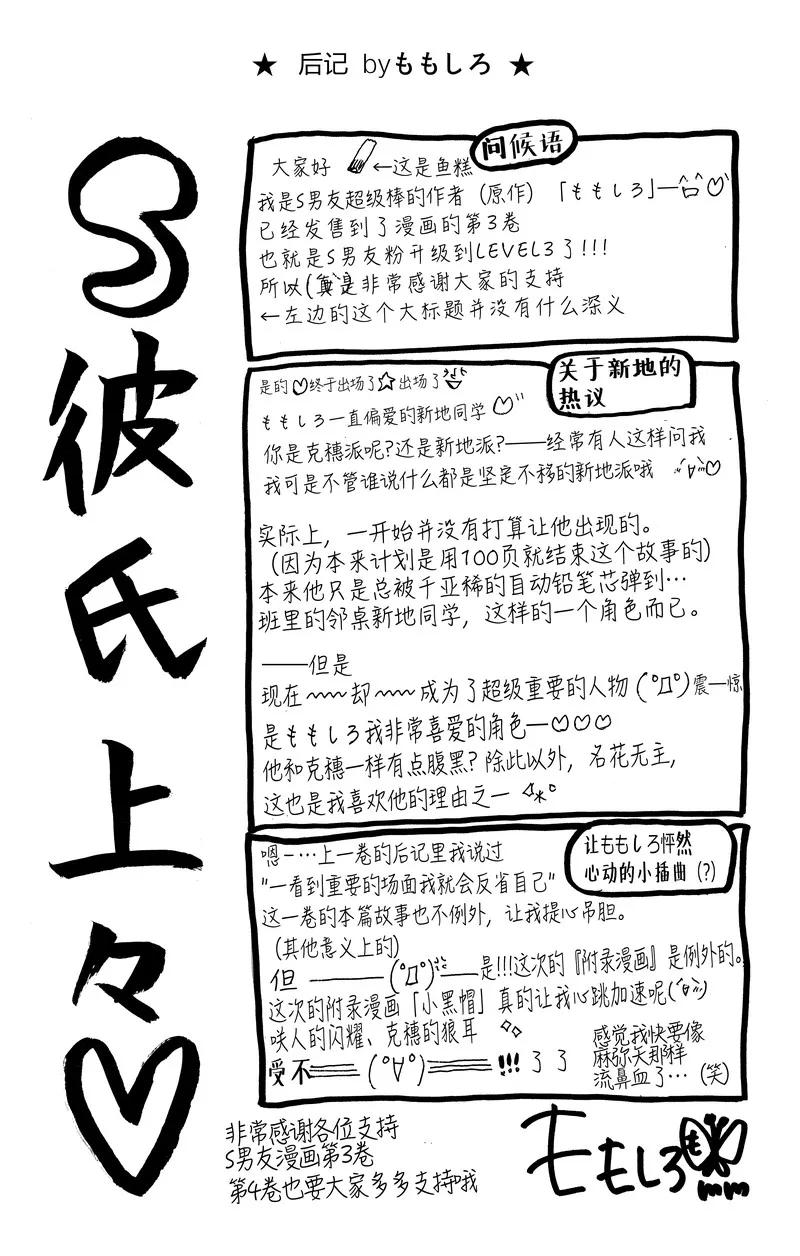 ★ 后记 byももしろ ★
S彼氏上々♡
问候语
大家好 ←这是鱼糕
我是S男友超级棒的作者（原作）「ももしろ」—♡
已经发售到了漫画的第3卷
也就是S男友粉升级到LEVEL3了!!!
所以(真是非常感谢大家的支持
←左边的这个大标题并没有什么深义
关于新地的
热议
是的♡终于出场了☆出场了
ももしろ一直偏爱的新地同学♡
你是克穗派呢?还是新地派?——经常有人这样问我
我可是不管谁说什么都是坚定不移的新地派哦 ♡
实际上，一开始并没有打算让他出现的。
（因为本来计划是用100页就结束这个故事的）
本来他只是总被千亚稀的自动铅笔芯弹到…
班里的邻桌新地同学，这样的一个角色而已。
——但是
现在~~~却~~~成为了超级重要的人物(°Д°)震—惊
是ももしろ我非常喜爱的角色—♡♡♡
他和克穗一样有点腹黑?除此以外，名花无主，
这也是我喜欢他的理由之一
让ももしろ怦然
心动的小插曲（?）
嗯－…上一卷的后记里我说过
"一看到重要的场面我就会反省自己"
这一卷的本篇故事也不例外，让我提心吊胆。
（其他意义上的）
但 ——(°Д°)——是!!!这次的『附录漫画』是例外的。
这次的附录漫画「小黑帽」真的让我心跳加速呢
咲人的闪耀、克穗的狼耳
受不══(°∀°)══!!!了了
感觉我快要像
麻弥天那样
流鼻血了…(笑)
非常感谢各位支持
S男友漫画第3卷
第4卷也要大家多多支持哦
ももしろ